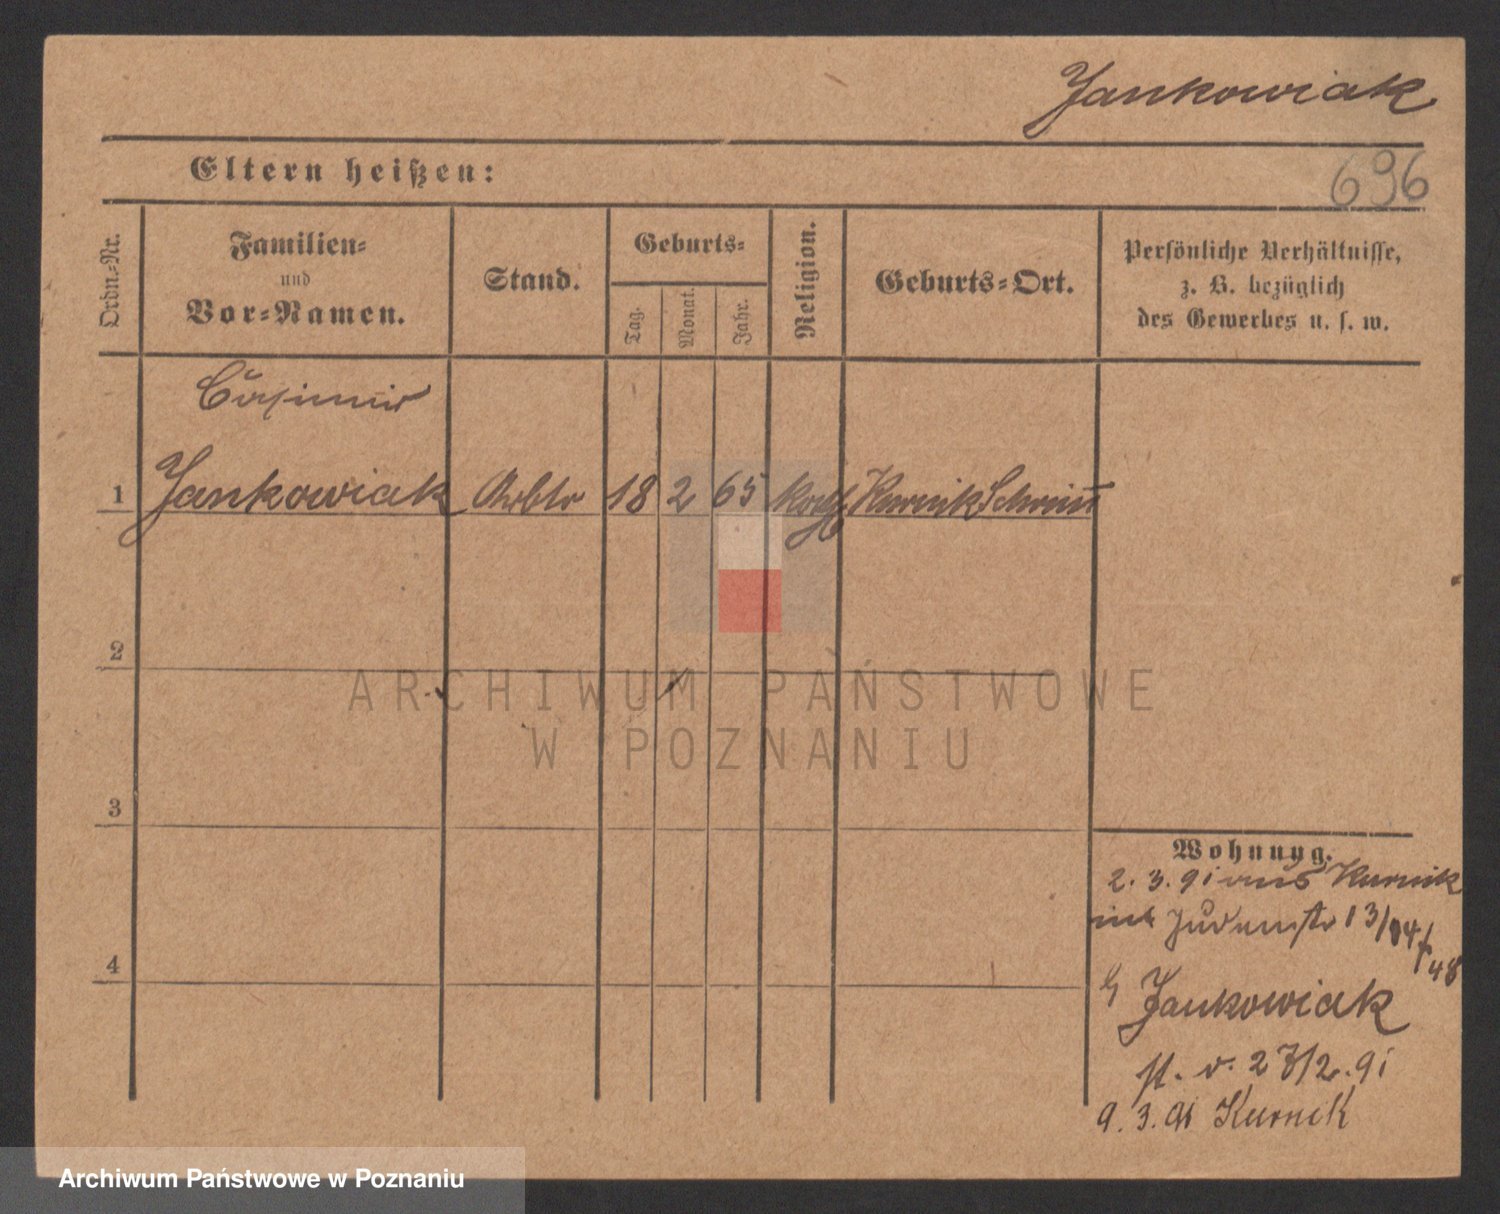 Jankowiak
Eltern heißen:
696
Ordn.-Nr.
Familien-
und
Vor-Namen.
Stand.
Geburts-
Tag.
Monat.
Jahr.
Religion.
Geburts-Ort.
Persönliche Verhältnisse,
z. B. bezüglich
des Gewerbes u. s. w.
Casimir
1 Jankowiak Arbtr 18 2 65 kath Kurnik Schrimm
2
3
4
Wohnung.
2. 3. 91 aus Kurnik
Judenstr 13/14
48
Jankowiak
v. 27/2. 91
9. 3. 91 Kurnik
ARCHIWUM PAŃSTWOWE
W POZNANIU
Archiwum Państwowe w Poznaniu